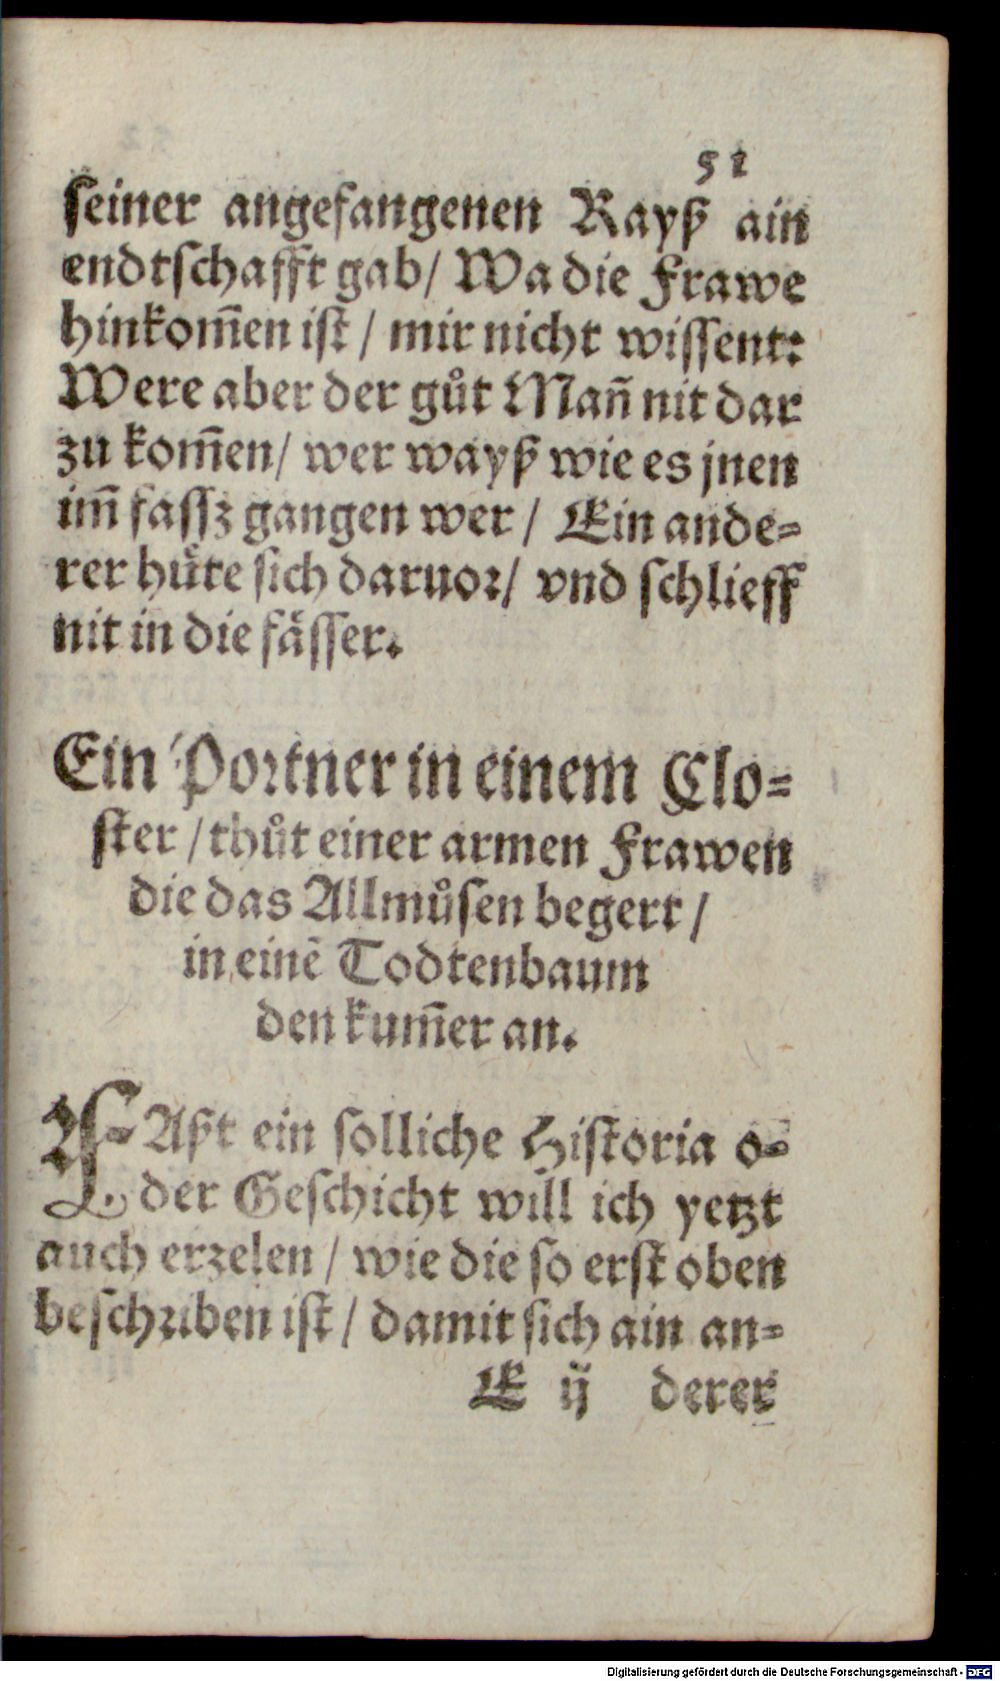 51
seiner angefangenen Rayß ain
endtschafft gab/ Wa die Frawe
hinkom̃en ist / mir nicht wissent:
Were aber der gůt Mañ nit dar
zu kom̃en/ wer wayß wie es jnen
im̃ fassz gangen wer / Ein ande=
rer hüte sich daruor/ vnd schlieff
nit in die fässer.
Ein Portner in einem Clo=
ster / thůt einer armen Frawen
die das Allmůsen begert /
in einē Todtenbaum
den kum̃er an.
FAßt ein solliche Historia o=
der Geschicht will ich yetzt
auch erzelen / wie die so erst oben
beschriben ist / damit sich ain an=
E ij derer
Digitalisierung gefördert durch die Deutsche Forschungsgemeinschaft - DFG